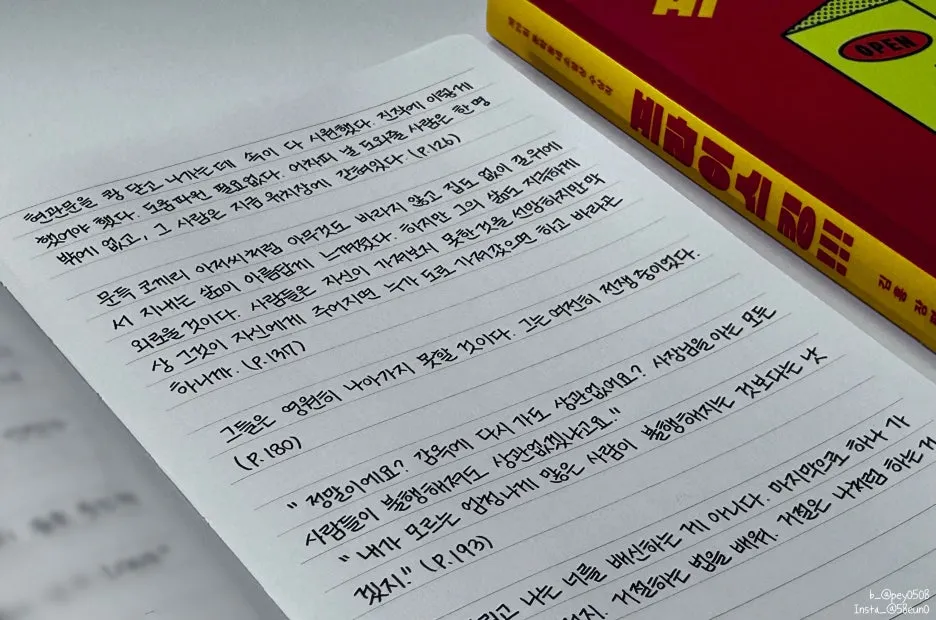 현관문을 쾅 닫고 나가는데 속이 다 시원했다. 진작에 이렇게
했어야 했다. 도움따윈 필요없다. 어차피 날 도와줄 사람은 한 명
밖에 없고, 그 사람은 지금 유치장에 갇혀있다. (P.126)
문득 코끼리 아저씨처럼 아무것도 바라지 않고 집도 없이 길위에
서 지내는 삶이 아름답게 느껴졌다. 하지만 그의 삶도 지독하게
외로울 것이다. 사람들은 자신이 가져보지 못한것을 선망하지만 막
상 그것이 자신에게 주어지면 누가 도로 가져갔으면 하고 바라곤
하니까. (P.137)
그들은 영원히 나아가지 못할 것이다. 그는 여전히 전쟁 중이었다.
(P.180)
" 정말이에요? 감옥에 다시 가도 상관없어요? 사장님을 아는 모든
사람들이 불행해져도 상관없겠냐고요."
" 내가 모르는 엄청나게 많은 사람이 불행해지는 것보다는 낫
겠지." (P.193)
나는 너를 배신하는 게 아니다. 마지막으로 하나 가
거절하는 법을 배워. 거절은 나처럼 하는 거
OPEN
프라이스 킹!!!
김홍
b_@pey0508
Insta_@58eun0